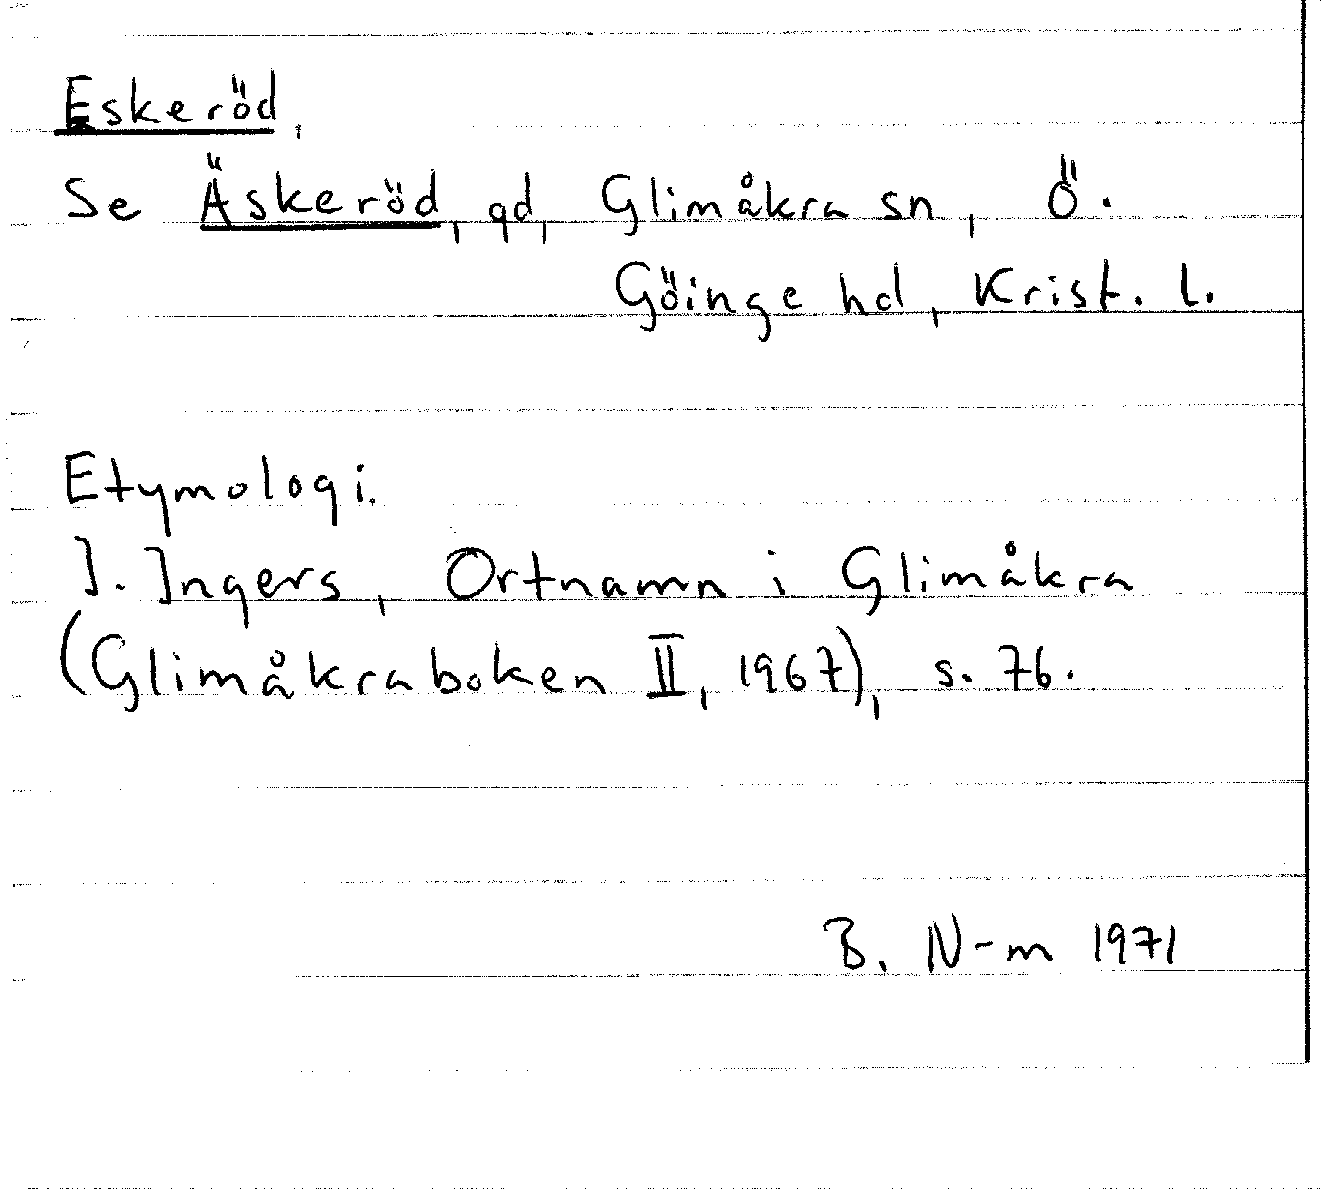 Eskeröd,
Se Äskeröd, gd, Glimåkra sn, Ö.
Göinge hd, Krist. l.
Etymologi.
I. Ingers, Ortnamn i Glimåkra
(Glimåkraboken II, 1967), s. 76.
B. N-m 1971